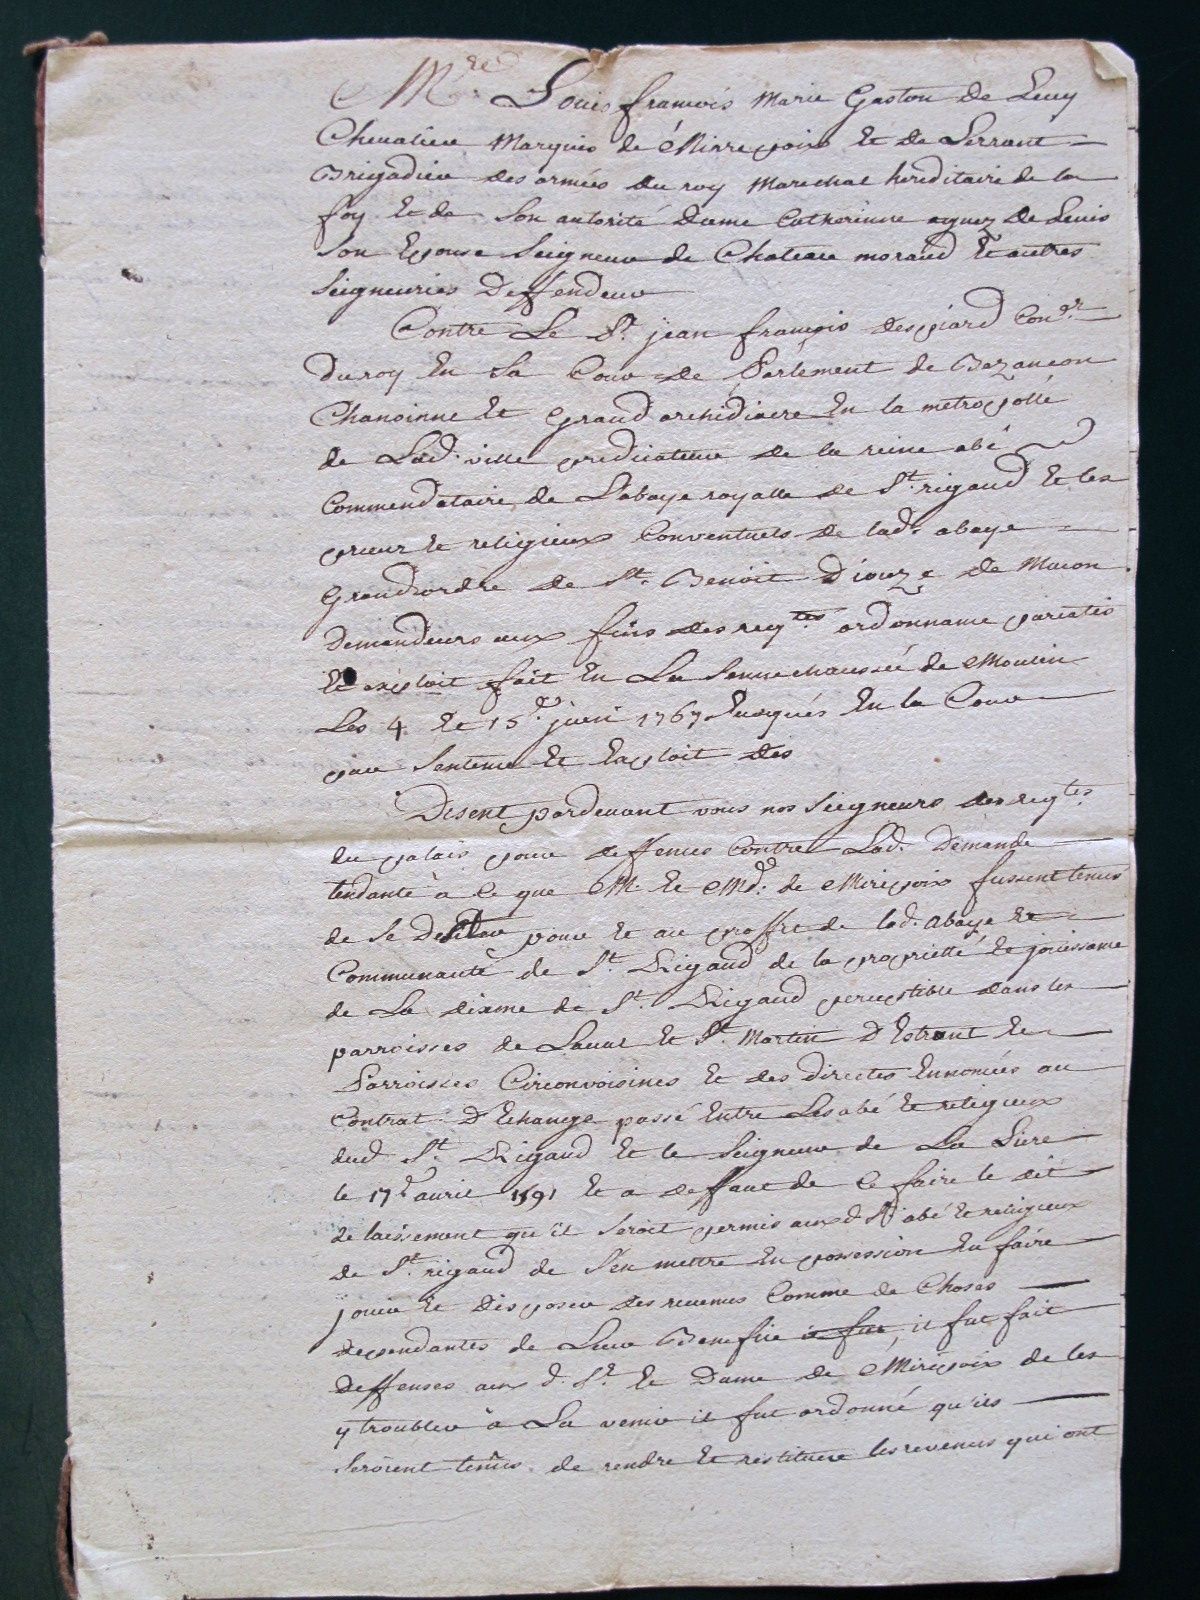 Mre Louis françois Marie Gaston de Levy
Chevalier Marquis de Mirrepoix Et de Terrant
Brigadier des armées du roy Marechal hereditaire de la
foy Et de Son autorité dame Catherinne agnez de Levis
Son Epouse Seigneur de Chateau morand Et autres
Seigneuries Deffendeur
Contre Le Sr. jean françois despiard Coner
du roy En Sa Cour de Parlement de Bezançon
Chanoinne Et Grand archidiacre En la metropolle
de Lad. ville predicateur de la reine abé
Commendataire de Labaye royalle de St. rigaud Et les
prieur Et religieux Conventuels de lad. abaye
Grand ordre de St. Benoit Diouzse de Macon
Demandeurs aux fins des reqtes ordonnance pareatis
Et exploit fait En La Sennechaussée de Moulin
Les 4 Et 15e. juin 1767 Evoqués En la Cour
par Sentence Et Exploit des
Disent pardevant vous nos Seigneurs des reqtes
du palais pour deffences Contre Lad. Demande
tendante à Ce que M. Et Md. de Mirepoix fussent tenus
de Se Desister pour Et au proffit de lad. Abaye Et
Communauté de St. Rigaud de la proprietté Et jouissance
de La dixme de St. Rigaud perceptible dans les
parroisses de Laval Et St. Martin D'Estraut Et
Parroisses Circonvoisines Et des directes Ennoncées au
Contrat D'Echange passé Entre Les abé Et religieux
dud. St. Rigaud Et le Seigneur de La Liere
le 17e. avril 1591 Et a deffaut de Ce faire le dit
delaissement qu'il Seroit permis auxd. Srs. abé Et religieux
de St. rigaud de S'En mettre En possession En faire
jouir Et Disposer des revenus Comme de Choses
dependantes de Leur Benefice il fut, il fut fait
deffenses aux d. Sr. Et Dame de Mirepoix de les
y troubler à La venir il fut ordonné qu'ils
Seroient tenus de rendre Et restituer les revenus qui ont